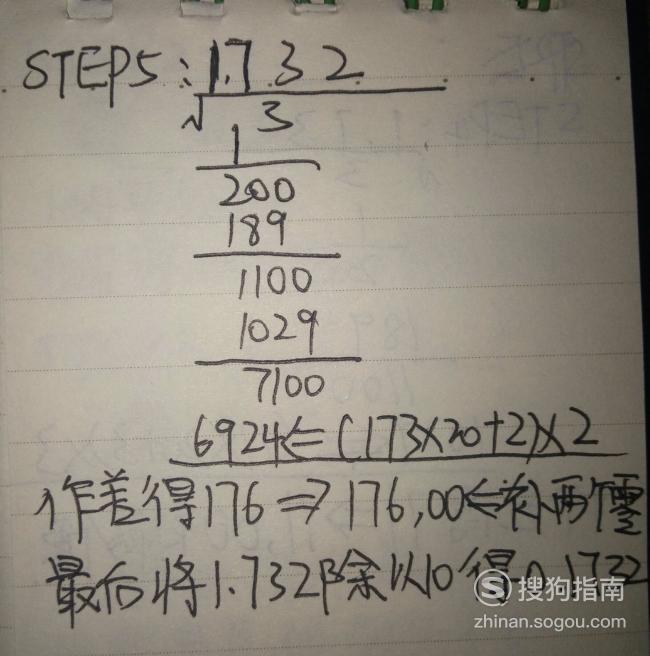 STEP5:1.732
√3
1
200
189
1100
1029
7100
6924⇐(173×20+2)×2
作差得176⇒176,00⇐补两个零
最后将1.732除以10得0.1732
搜狗指南
zhinan.sogou.com